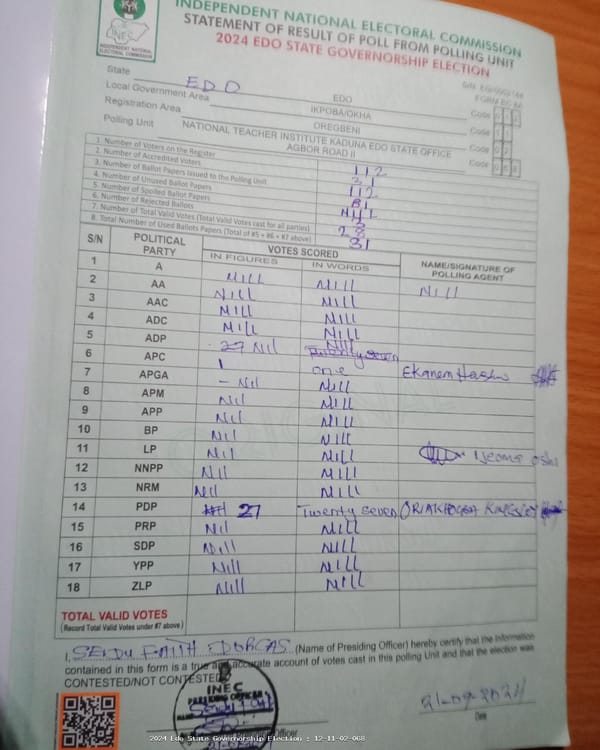 INDEPENDENT NATIONAL ELECTORAL COMMISSION
STATEMENT OF RESULT OF POLL FROM POLLING UNIT
2024 EDO STATE GOVERNORSHIP ELECTION
INEC
INDEPENDENT NATIONAL ELECTORAL COMMISSION
State EDO EDO Code
Local Government Area IKPOBA/OKHA Code
Registration Area OREGBENI Code
Polling Unit NATIONAL TEACHER INSTITUTE KADUNA EDO STATE OFFICE AGBOR ROAD II Code
1. Number of Voters on the Register 112
2. Number of Accredited Voters 31
3. Number of Ballot Papers Issued to the Polling Unit 112
4. Number of Unused Ballot Papers 81
5. Number of Spoiled Ballot Papers
6. Number of Rejected Ballots 3
7. Number of Total Valid Votes (Total Valid Votes cast for all parties) 28
8. Total Number of Used Ballots Papers (Total of #5 + #6 + #7 above) 31
S/N POLITICAL PARTY VOTES SCORED NAME/SIGNATURE OF POLLING AGENT
IN FIGURES IN WORDS
1 A NILL NILL Nill
2 AA Nill NILL
3 AAC NILL NILL
4 ADC NILL NILL
5 ADP 27 Nil NILL Twenty seven
6 APC 1 one Ekanem
7 APGA - Nil Nill
8 APM Nil NILL
9 APP Nil NILL
10 BP Nil NILL
11 LP Nil NILL
12 NNPP Nil NILL
13 NRM Nil NILL
14 PDP 27 Twenty Seven
15 PRP Nil NILL
16 SDP Nill NILL
17 YPP Nill NILL
18 ZLP Nill NILL
TOTAL VALID VOTES
(Record Total Valid Votes under #7 above)
I, SEIDU FAITH DORCAS (Name of Presiding Officer) hereby certify that the information
contained in this form is a true and accurate account of votes cast in this polling Unit and that the election was
CONTESTED/NOT CONTESTED
INEC
PRESIDING OFFICER
21-09-2024
Date
2024 Edo State Governorship Election : 12-11-02-068